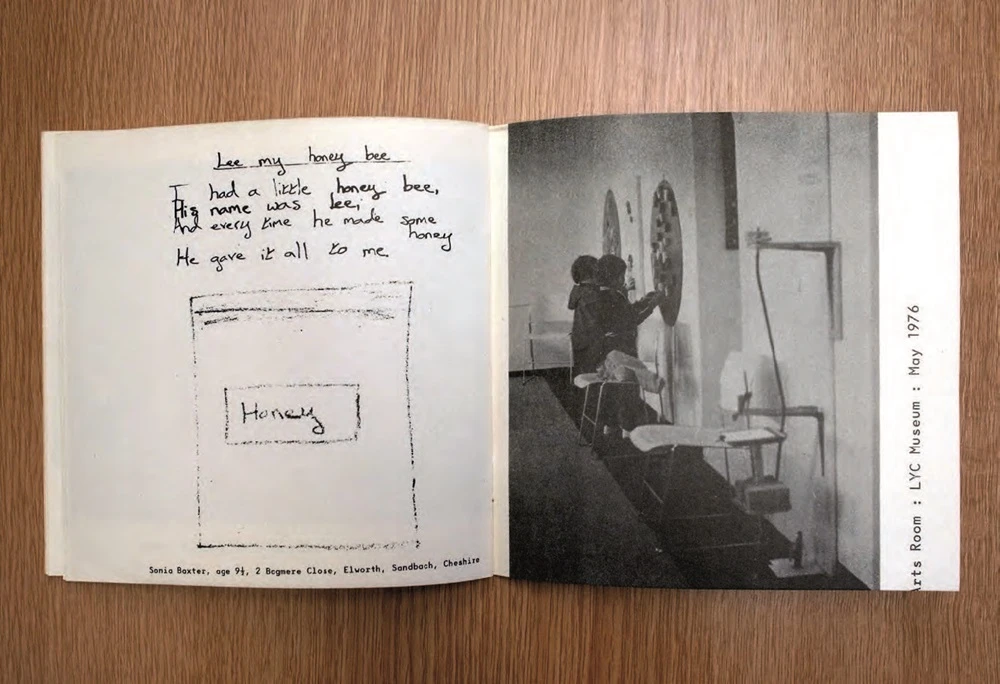 Lee my honey bee
I had a little honey bee,
His name was Lee;
And every time he made some
honey
He gave it all to me.
Honey
Sonia Baxter, age 9½, 2 Bogmere Close, Elworth, Sandbach, Cheshire
Arts Room : LYC Museum : May 1976